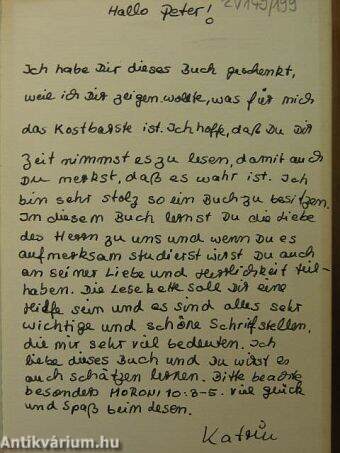 2V145/199
Hallo Peter!
Ich habe Dir dieses Buch geschenkt,
weil ich Dir zeigen wollte, was für mich
das Kostbarste ist. Ich hoffe, daß Du Dir
Zeit nimmst es zu lesen, damit auch
Du merkst, daß es wahr ist. Ich
bin sehr stolz so ein Buch zu besitzen.
In diesem Buch lernst Du die Liebe
des Herrn zu uns und wenn Du es
aufmerksam studierst wirst Du auch
an seiner Liebe und Herrlichkeit teil-
haben. Die Lesekette soll Dir eine
Hilfe sein und es sind alles sehr
wichtige und schöne Schriftstellen,
die mir sehr viel bedeuten. Ich
liebe dieses Buch und Du wirst es
auch schätzen lernen. Bitte beachte
besonders MORONI 10:3-5. Viel Glück
und Spaß beim Lesen.
Katrin
Antikvárium.hu